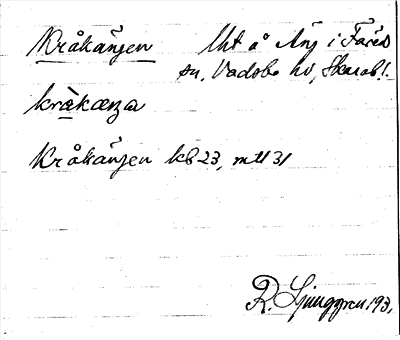 Kråkängen Utt å Äng i Färeds
sn, Vadsbo hd, Skarab!.
kråkæŋa
Kråkängen kb 23, mtl 31
R. Ljunggren 193,